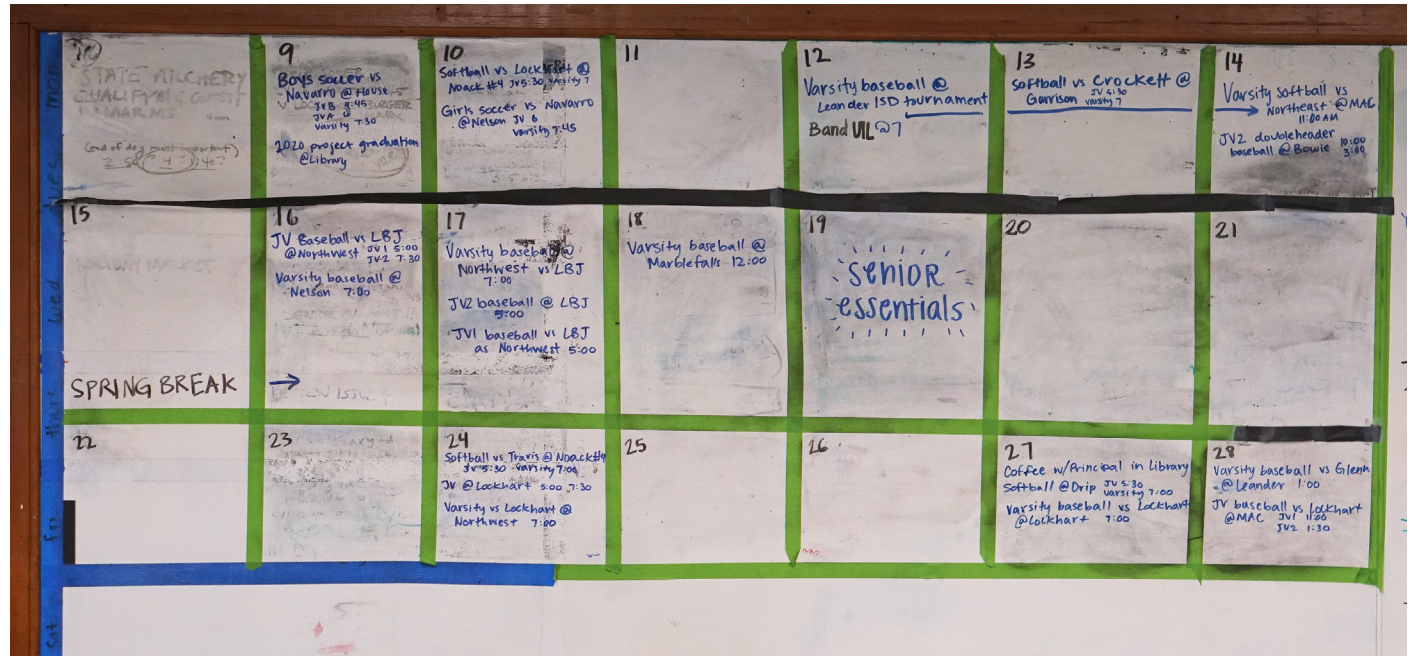 STATE
QUALIFYING
(end of day most important)
9
Boys soccer vs
Navarro @ House
JVB 4:45
JVA 6
varsity 7:30
2020 project graduation
@Library
10
Softball vs Lockhart @
Noack #4 JV 5:30 varsity 7
Girls soccer vs Navarro
@Nelson JV 6
varsity 7:45
11
12
Varsity baseball @
Leander ISD tournament
Band UIL @7
13
Softball vs Crockett @
Garrison JV 5:30
varsity 7
14
Varsity softball vs
Northeast @MAC
11:00 AM
JV2 doubleheader
baseball @ Bowie 10:00
3:00
15
HOLIDAY MARKET
SPRING BREAK →
16
JV Baseball vs LBJ
@Northwest JV1 5:00
JV2 7:30
Varsity baseball @
Nelson 7:00
17
Varsity baseball @
Northwest vs LBJ
7:00
JV2 baseball @ LBJ
5:00
JV1 baseball vs LBJ
as Northwest 5:00
18
Varsity baseball @
Marblefalls 12:00
19
senior
essentials
20
21
22
23
24
Softball vs Travis @ Noack #4
JV 5:30 varsity 7:00
JV @Lockhart 5:00 7:30
Varsity vs Lockhart @
Northwest 7:00
25
26
27
Coffee w/Principal in Library
Softball @ Drip JV 5:30
varsity 7:00
Varsity baseball vs Lockhart
@Lockhart 7:00
28
Varsity baseball vs Glenn
@ Leander 1:00
JV baseball vs Lockhart
@MAC JV1 11:00
JV2 1:30
mon
tues
wed
thurs
fri
sat